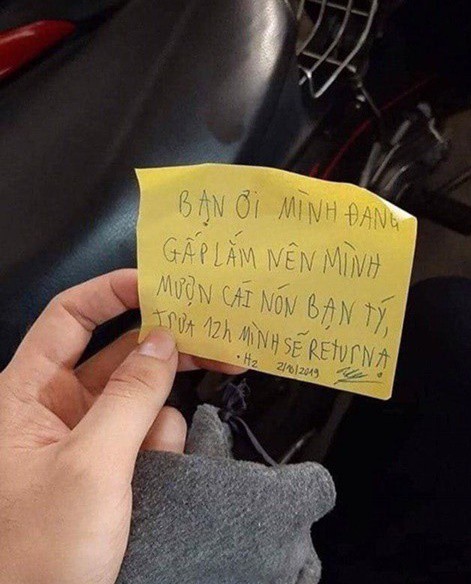 BẠN ƠI MÌNH ĐANG
GẤP LẮM NÊN MÌNH
MƯỢN CÁI NÓN BẠN TÝ,
TRƯA 12h MÌNH SẼ RETURN Ạ
. Hz 2/10/2019